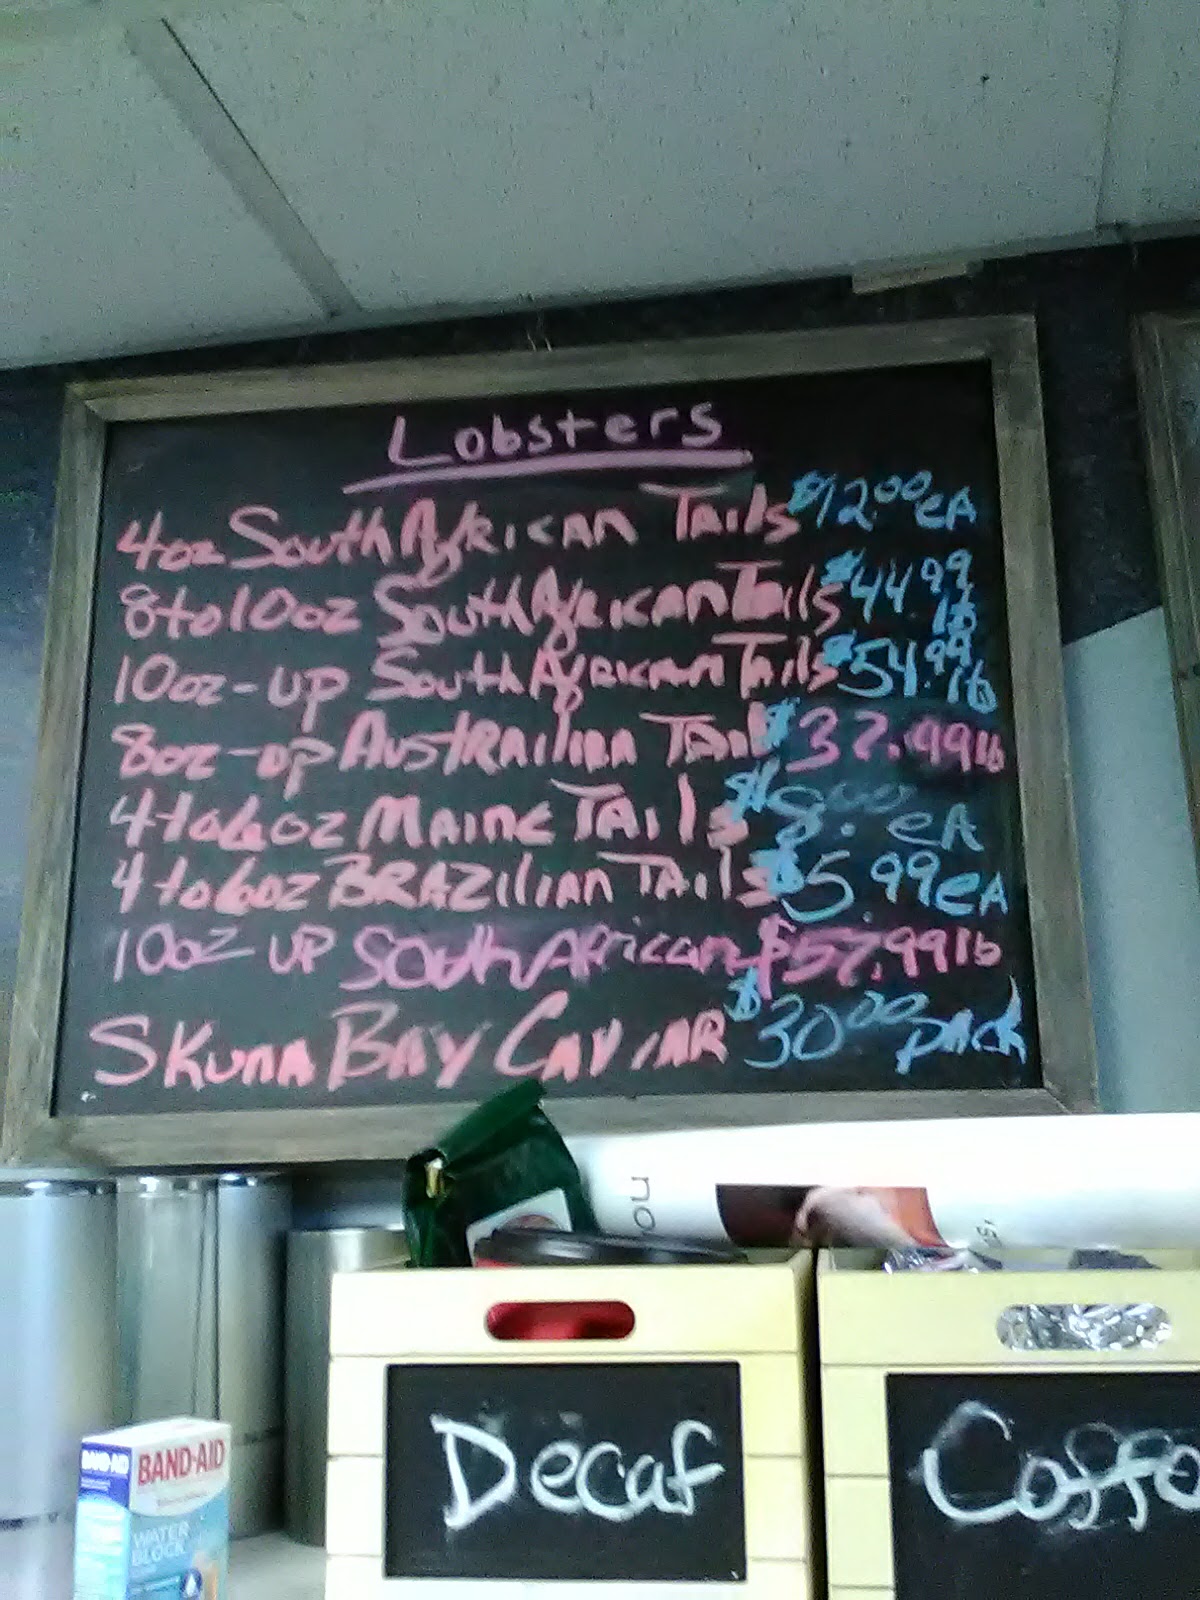 Lobsters
4oz South African Tails $12.00 eA
8 to 10oz South African Tails $44.99 lb
10oz-up South African Tails $54.99 lb
8oz-up Austrailian Tails $37.99 lb
4 to 6oz Maine Tails $8.00 eA
4 to 6oz BRAZilian TAils $5.99 eA
10oz UP South African $57.99 lb
Skuna Bay Caviar $30.00 pack
no
s,
Decaf
Coffe
BAND-AID
BAND-AID
WATER
BLOCK